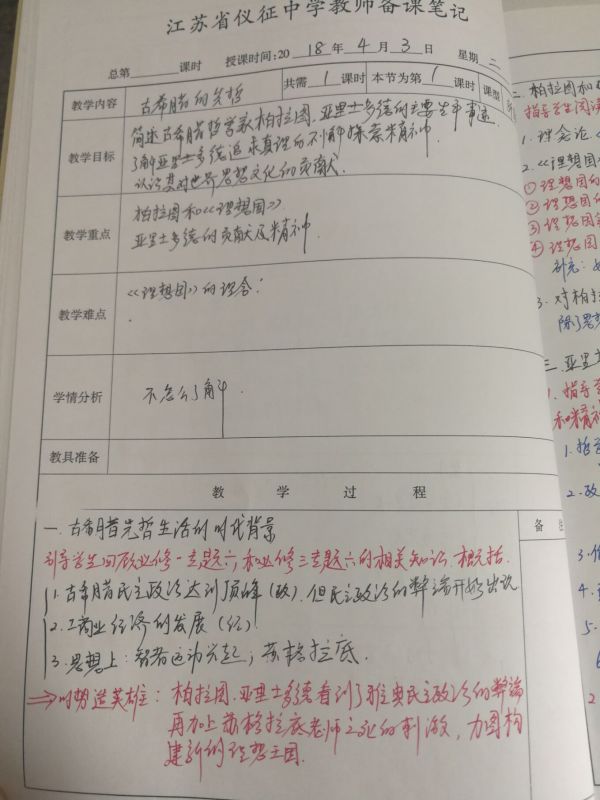 江苏省仪征中学教师备课笔记
总第 课时 授课时间:20 18 年 4 月 3 日 星期 二
教学内容 古希腊的先哲 共需 1 课时 本节为第 1 课时 课型
教学目标 简述古希腊哲学家柏拉图、亚里士多德的主要生平事迹
了解亚里士多德追求真理的不懈探索精神
认识其对世界思想文化的贡献.
教学重点 柏拉图和《理想国》
亚里士多德的贡献及精神.
教学难点 《理想国》的理念:
学情分析 不怎么了解.
教具准备
教 学 过 程
备
一. 古希腊先哲生活的时代背景
引导学生回顾必修一专题六和必修三专题六的相关知识. 概括.
1. 古希腊民主政治达到顶峰(政). 但民主政治的弊端开始出现
2. 工商业经济的发展(经).
3. 思想上: 智者运动兴起; 苏格拉底.
⇒时势造英雄: 柏拉图. 亚里士多德看到了雅典民主政治的弊端
再加上苏格拉底老师之死的刺激, 力图构
建新的理想王国.
二. 柏拉图和
指导学生阅读
1. 理念论
2. 《理想国
① 理想国的
② 理想国的
③ 理想国
④ 理想国
补充:
3. 对柏拉
除了思想
三. 亚里
1. 指导学
和精神
1. 哲
2. 政
3.
4.
5.